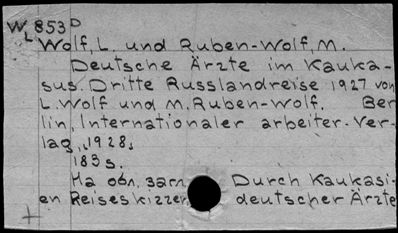 W 853 D
L
Wolf, L. und Ruben-Wolf, M.
Deutsche Ärzte im Kauka-
sus. Dritte Russlandreise 1927 von
L. Wolf und M. Ruben-Wolf. Ber
lin, Internationaler arbeiter-Ver-
lag, 1928.
183 s.
На обл. загл Durch Kaukasi-
en Reiseskizzen deutscher Ärzte